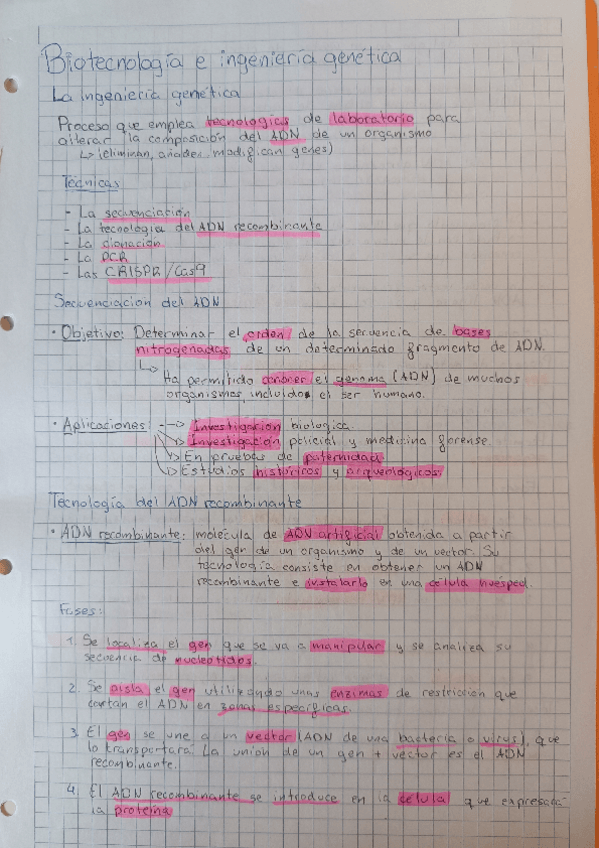 Biotecnología e ingeniería genética
La ingeniería genética
Proceso que emplea tecnologías de laboratorio para
alterar la composición del ADN de un organismo
↳ (eliminan, añaden, modifican genes)
Técnicas
- La secuenciación
- La tecnología del ADN recombinante
- La clonación
- La PCR
- Las CRISPR/Cas9
Secuenciación del ADN
• Objetivo: Determinar el orden de la secuencia de bases
nitrogenadas de un determinado fragmento de ADN.
↳ Ha permitido conocer el genoma (ADN) de muchos
organismos, incluido el ser humano.
• Aplicaciones: → Investigación biológica.
→ Investigación policial y medicina forense.
→ En pruebas de paternidad
→ Estudios históricos y arqueológicos
Tecnología del ADN recombinante
• ADN recombinante: molécula de ADN artificial obtenida a partir
del gen de un organismo y de un vector. Su
tecnología consiste en obtener un ADN
recombinante e instalarlo en una célula huésped.
Fases:
1. Se localiza el gen que se va a manipular y se analiza su
secuencia de nucleótidos.
2. Se aisla el gen utilizando unas enzimas de restricción que
cortan el ADN en zonas específicas.
3. El gen se une a un vector (ADN de una bacteria o virus), que
lo transportará. La unión de un gen + vector es el ADN
recombinante.
4. El ADN recombinante se introduce en la célula que expresará
la proteína